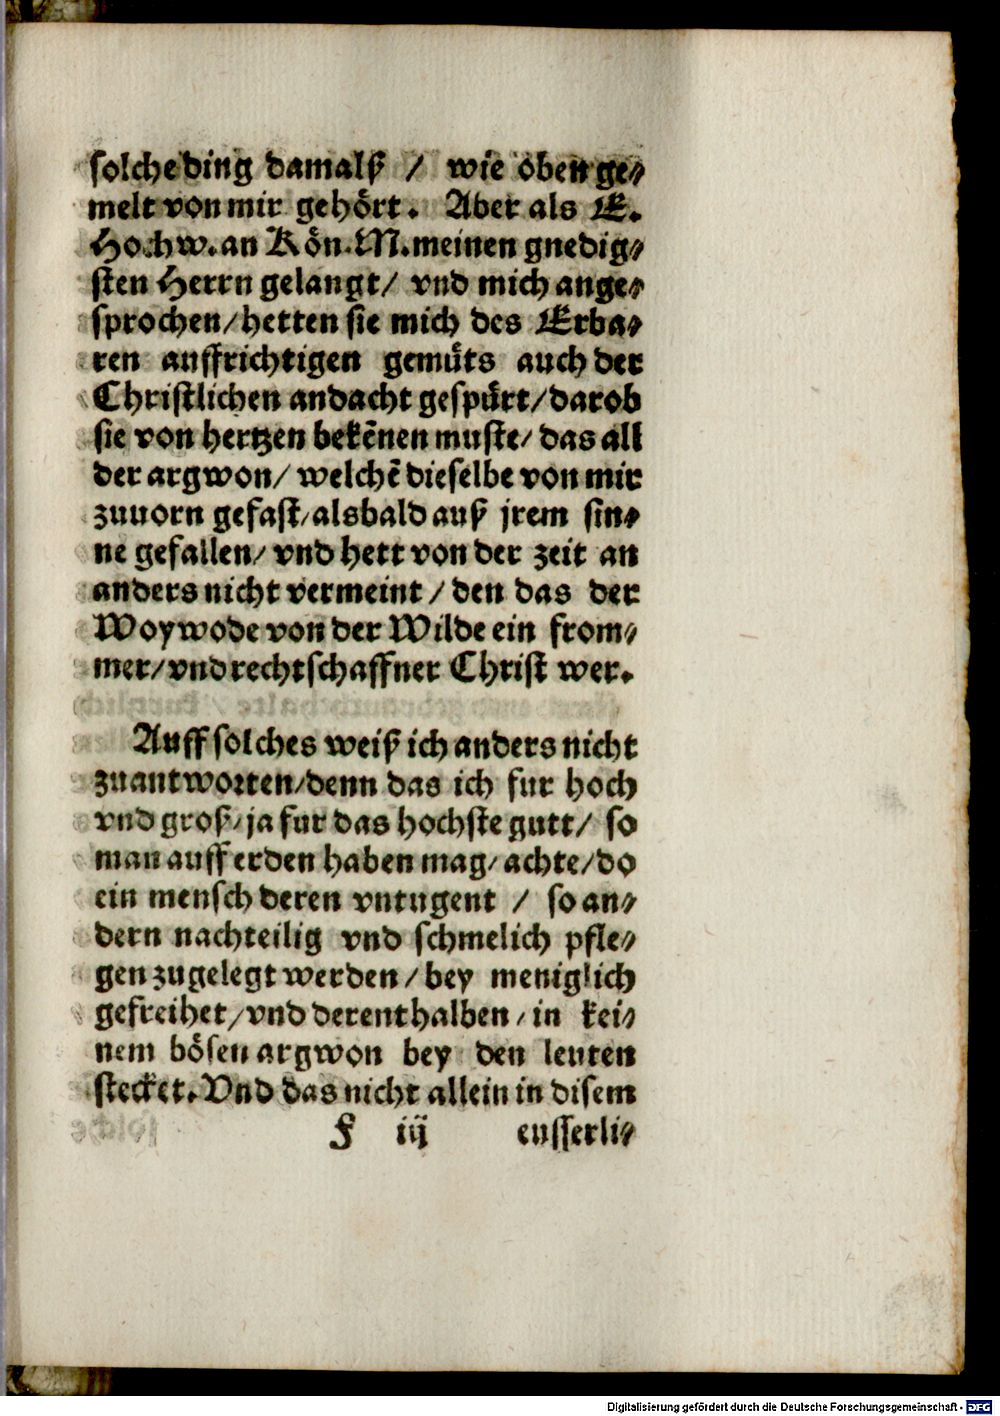 solche ding damalß / wie oben ge⸗
melt von mir gehört. Aber als E.
Hochw. an Kön. M. meinen gnedig⸗
sten Herrn gelangt / vnd mich ange⸗
sprochen / hetten sie mich des Erba⸗
ren auffrichtigen gemüts auch der
Christlichen andacht gespürt / darob
sie von hertzen bekēnen muste / das all
der argwon / welchē dieselbe von mir
zuuorn gefast / alsbald auß jrem sin⸗
ne gefallen / vnd hett von der zeit an
anders nicht vermeint / den das der
Woywode von der Wilde ein from⸗
mer / vnd rechtschaffner Christ wer.
Auff solches weiß ich anders nicht
zuantworten / denn das ich fur hoch
vnd groß / ja fur das hochste gutt / so
man auff erden haben mag / achte / do
ein mensch deren vntugent / so an⸗
dern nachteilig vnd schmelich pfle⸗
gen zugelegt werden / bey meniglich
gefreihet / vnd derenthalben / in kei⸗
nem bösen argwon bey den leuten
stecket. Vnd das nicht allein in disem
F iij eusserli⸗
Digitalisierung gefördert durch die Deutsche Forschungsgemeinschaft - DFG